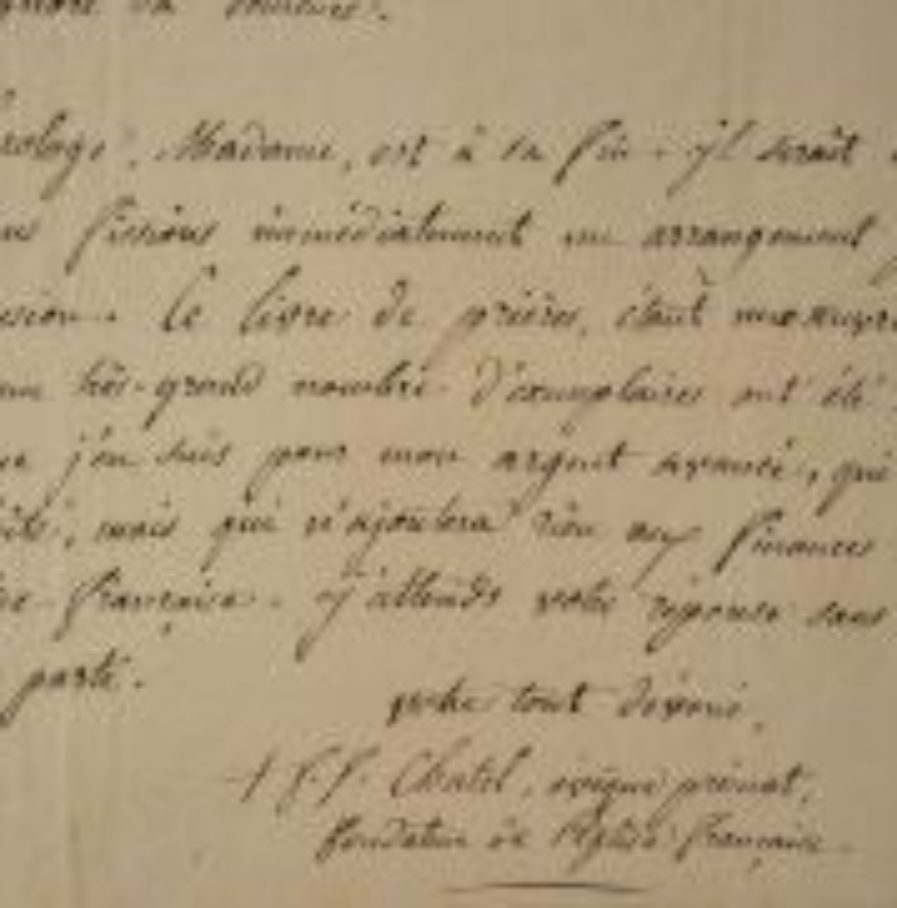 rologe, Madame, est à sa fin. il serait
fissions immédiatement un arrangement
le livre de prières, étant
un très-grand nombre d'exemplaires ont été
j'en suis pour mon argent avancé, qui
mais qui n'ajoutera rien aux finances
française. j'attends votre réponse sans
parte.
votre tout dévoué,
+ f. f. Chatel, évêque primat,
fondateur de l'église française